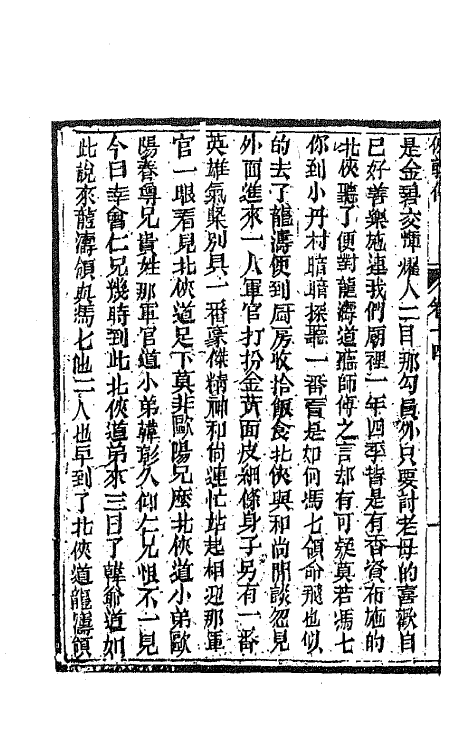 是金碧交輝耀人二目那勾員外只要討老母的喜歡自
已好善樂施連我們廟裡一年四季皆是有香資布施的
北俠聽了便對龍濤道聽師傅之言却有可疑莫若馮七
你到小丹村暗暗探聽一番看是如何馮七領命飛也似
的去了龍濤便到厨房收拾飯食北俠與和尚閒談忽見
外面進來一人軍官打扮金黃面皮細條身子另有一番
英雄氣槩別具一番豪傑精神和尚連忙站起相迎那軍
官一眼看見北俠道足下莫非歐陽兄麼北俠道小弟歐
陽春尊兄貴姓那軍官道小弟韓彰久仰仁兄恨不一見
今日幸會仁兄幾時到此北俠道弟來三日了韓爺道如
此說來龍濤頭與馮七他二人也早到了北俠道龍濤頭